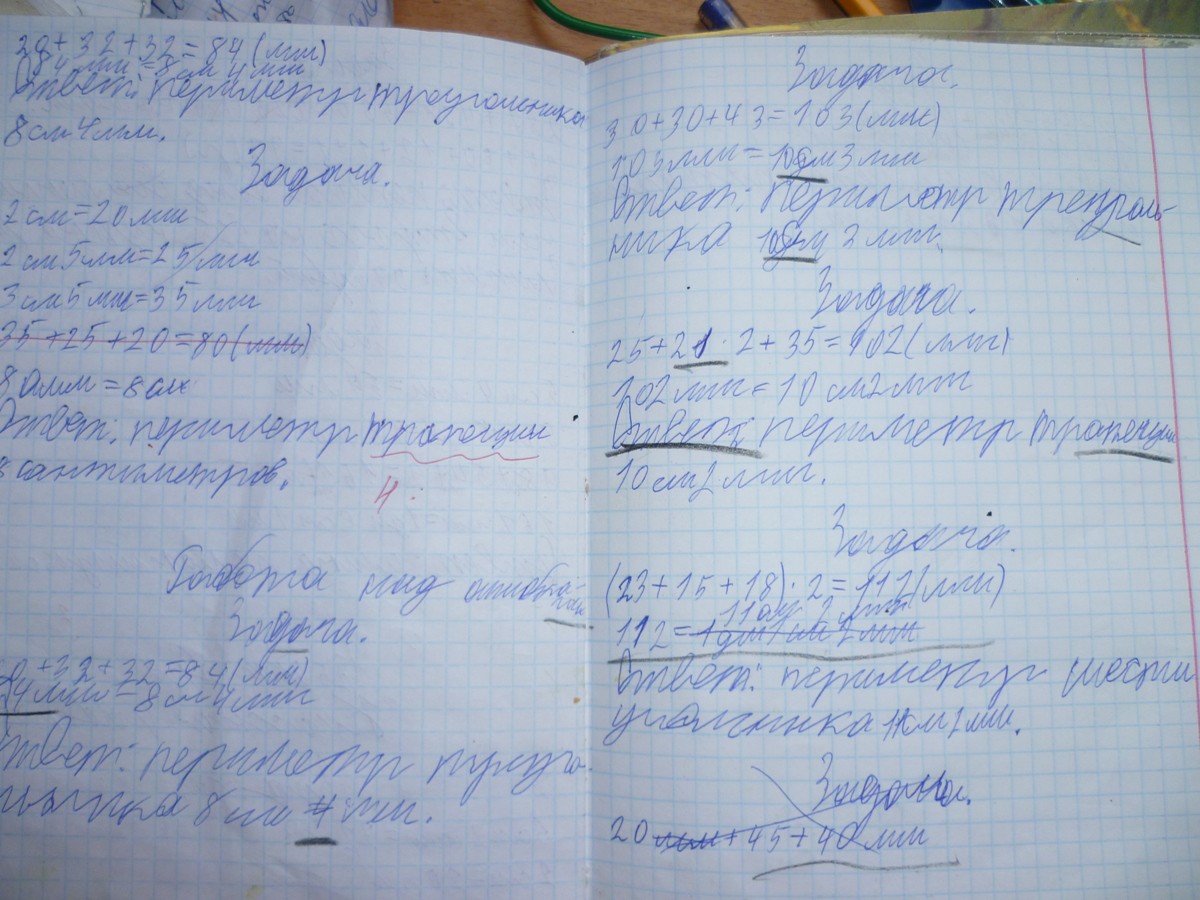 20+32+32=84(мм)
84мм=8см 4мм
Ответ: периметр треугольника
8см 4мм.
Задача.
2см=20мм
2см5мм=25мм
3см5мм=35мм
35+25+20=80(мм)
80мм=8см
Ответ: периметр трапеции
8 сантиметров.
4.
Работа над ошибками
Задача.
20+32+32=84(мм)
84мм=8см4мм
Ответ: периметр треуго-
льника 8см 4мм.
Задача.
30+30+43=103(мм)
103мм=10см3мм
Ответ: периметр треуголь-
ника 10см 3мм.
Задача.
25+21·2+35=102(мм)
102мм=10см2мм
Ответ: периметр трапеции
10см2мм.
Задача.
(23+15+18)·2=112(мм)
11см 2мм
112=1дм1см 2мм
Ответ: периметр шести
угольника 11см2мм.
Задача.
20мм+45+40мм